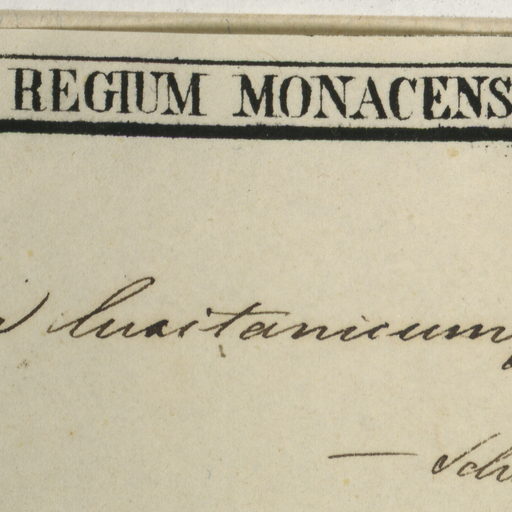 REGIUM MONACENS
lusitanicum
— Sch